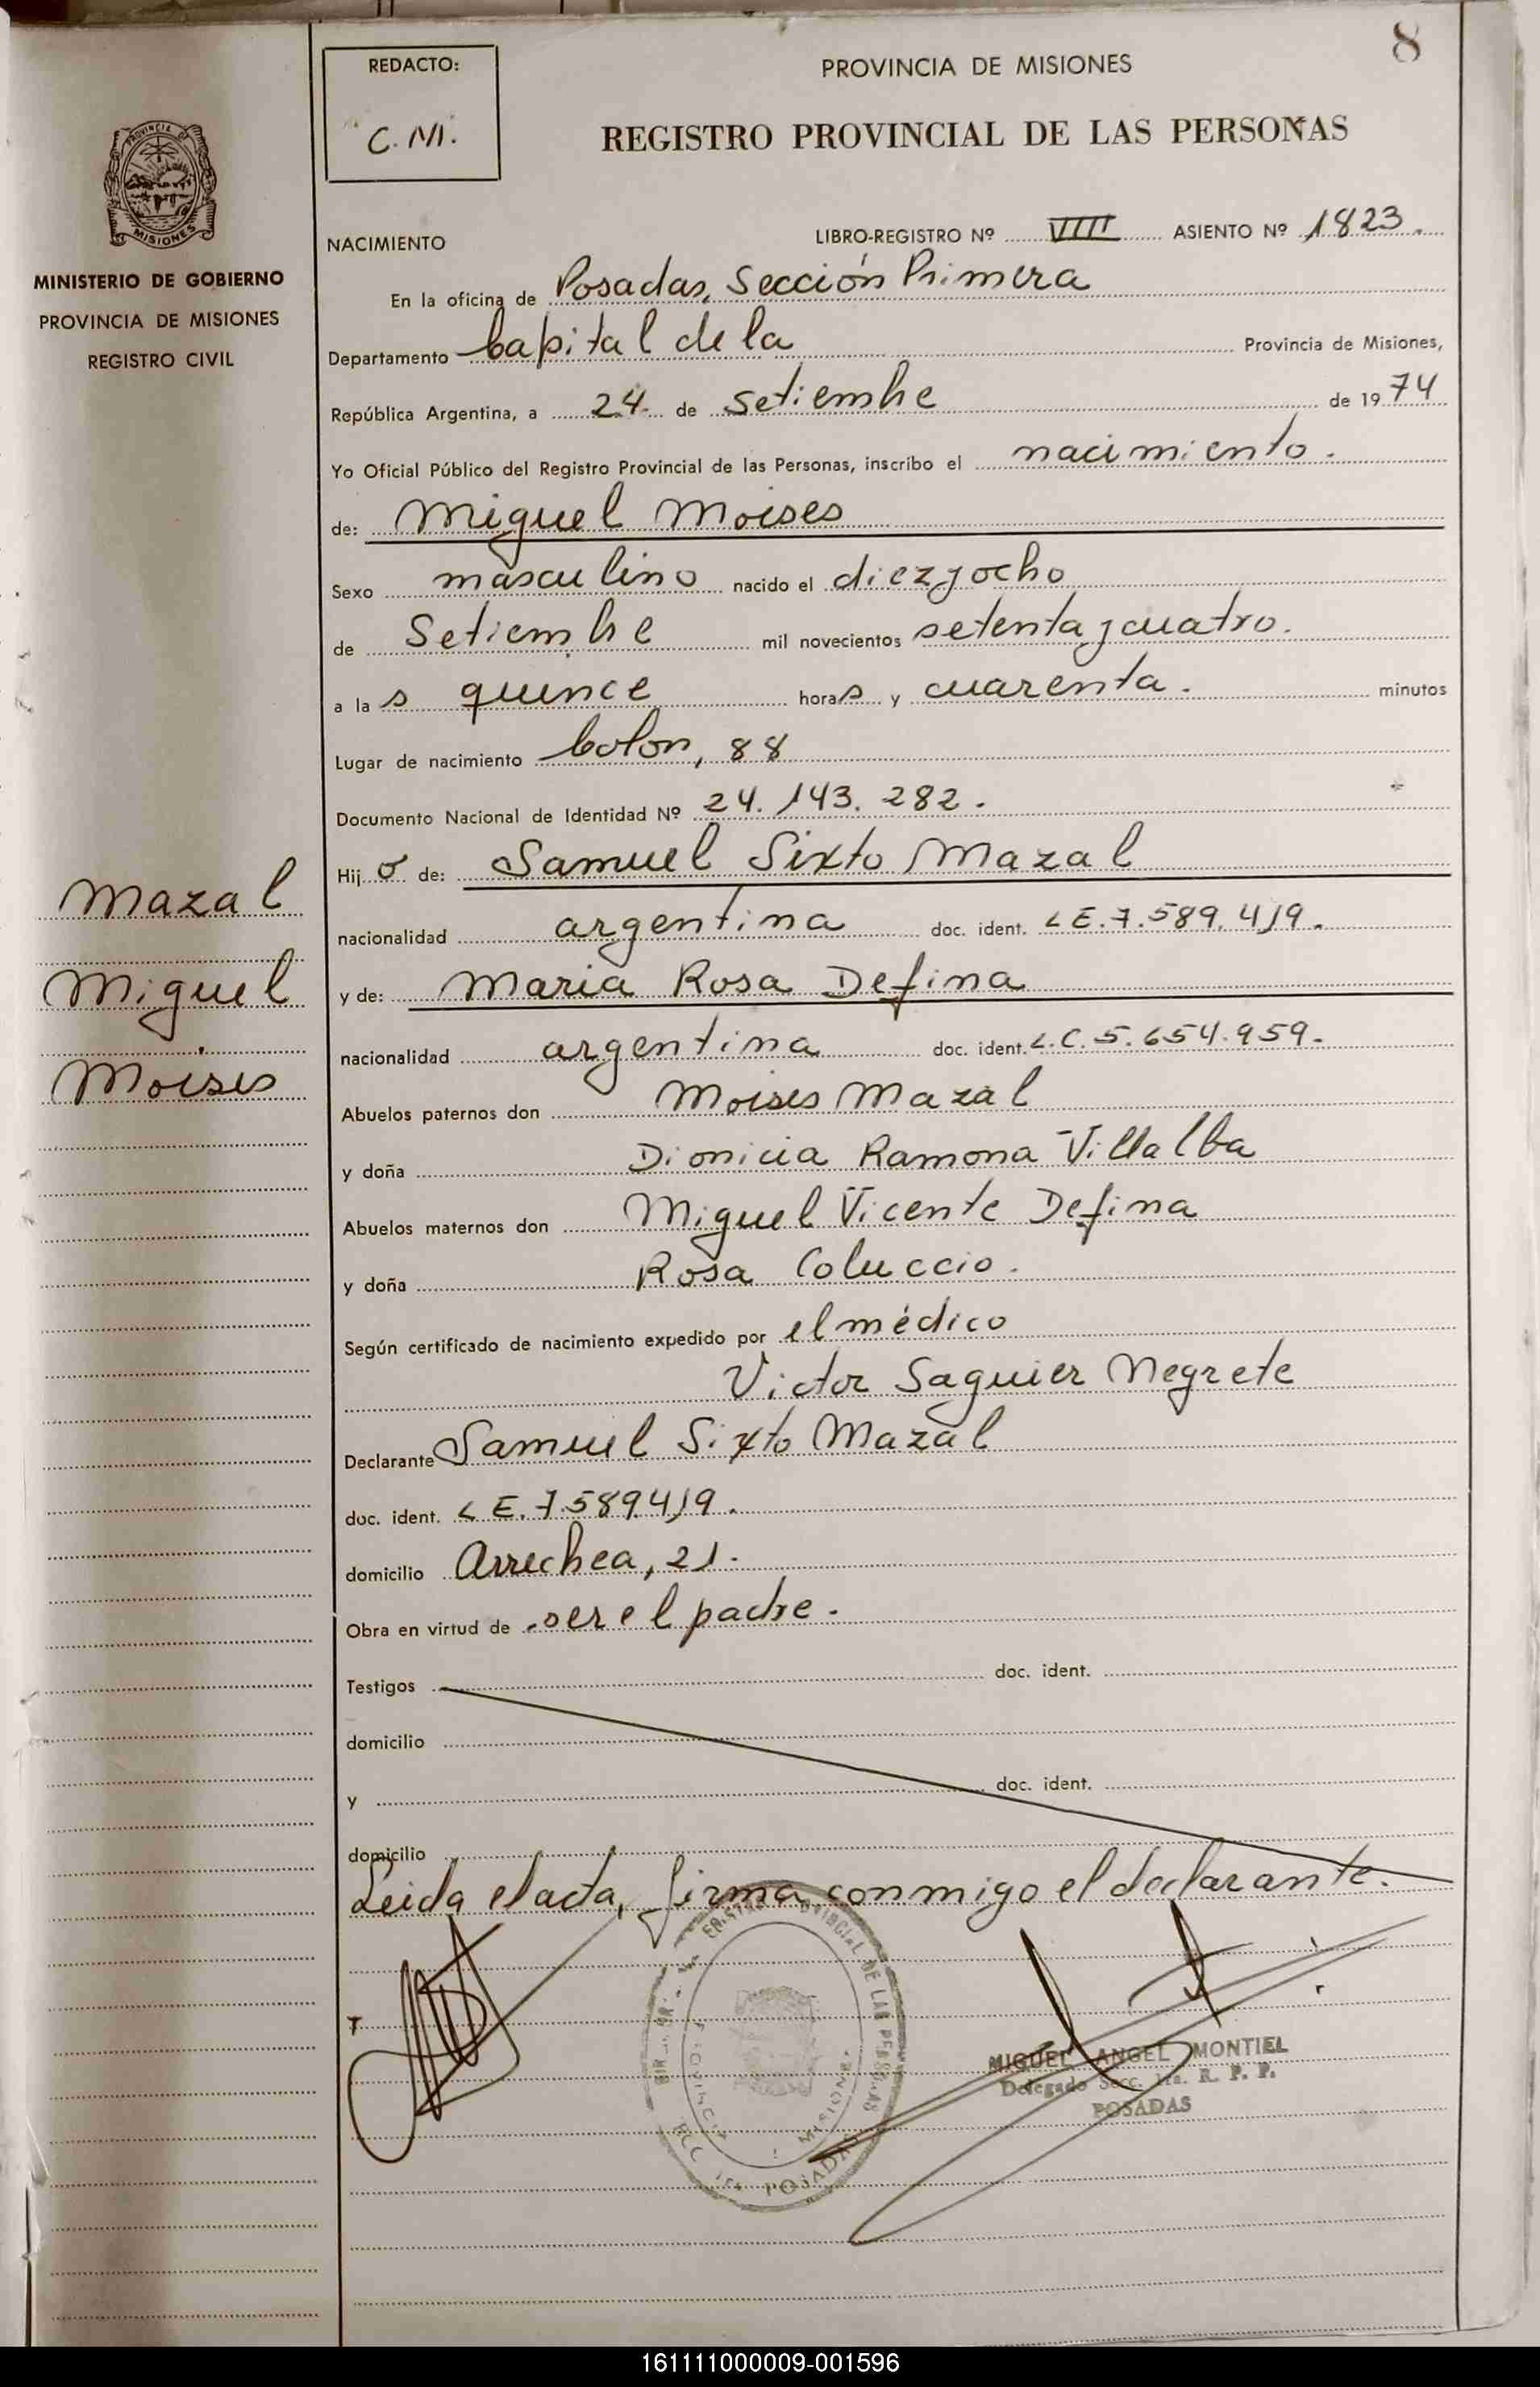 8
REDACTO:
C. M.
PROVINCIA DE MISIONES
REGISTRO PROVINCIAL DE LAS PERSONAS
PROVINCIA DE MISIONES
MINISTERIO DE GOBIERNO
PROVINCIA DE MISIONES
REGISTRO CIVIL
NACIMIENTO
LIBRO-REGISTRO Nº VIIII ASIENTO Nº 1823.
En la oficina de Posadas, Sección Primera
Departamento Capital de la Provincia de Misiones,
República Argentina, a 24 de Setiembre de 1974
Yo Oficial Público del Registro Provincial de las Personas, inscribo el nacimiento.
de: Miguel Moises
Sexo masculino nacido el diez y ocho
de Setiembre mil novecientos setenta y cuatro.
a las quince horas y cuarenta. minutos
Lugar de nacimiento Colon, 88
Documento Nacional de Identidad Nº 24.143.282.
Hijo de: Samuel Sixto Mazal
nacionalidad argentina doc. ident. L E. 7.589.419.
y de: Maria Rosa Defina
nacionalidad argentina doc. ident. L.C. 5.654.959.
Abuelos paternos don Moises Mazal
y doña Dionicia Ramona Villalba
Abuelos maternos don Miguel Vicente Defina
y doña Rosa Coluccio.
Según certificado de nacimiento expedido por el médico
Victor Saguier Negrete
Declarante Samuel Sixto Mazal
doc. ident. L E. 7.589.419.
domicilio Arrechea, 21.
Obra en virtud de ser el padre.
Testigos doc. ident.
domicilio
y doc. ident.
domicilio
Leida el acta, firma conmigo el declarante.
Mazal
Miguel
Moises
MIGUEL ANGEL MONTIEL
Delegado Secc. 1ra. R. P. P.
POSADAS
161111000009-001596